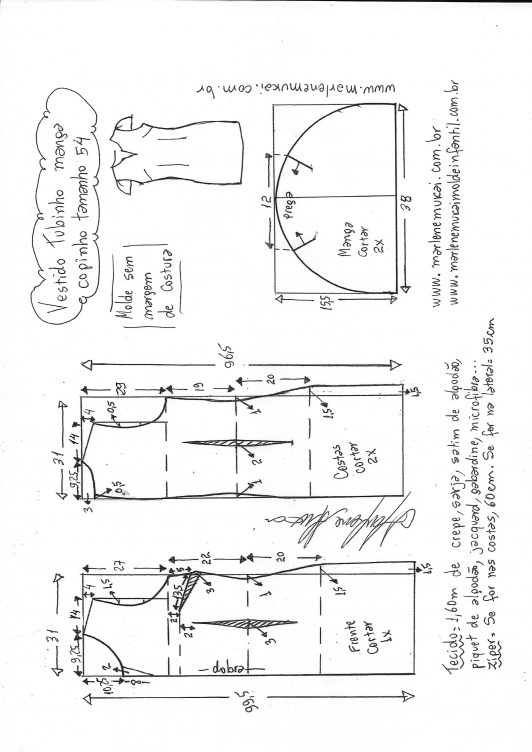 Vestido Tubinho manga
e copinho tamanho 54
Molde sem
margem
de costura
www.marlenemukai.com.br
12
Prega
Manga
Cortar
2x
15,5
38
www.marlenemukai.com.br
www.marlenemukaimoldeinfantil.com.br
96,5
29
19
20
31
14
4
9,25
3
0,5
0,5
1
2
1
1,5
1,5
Costas
Cortar
2x
27
22
20
31
14
4
1,5
9,25
10,25
2
8
5
3,5
3
2
2
1
3
1,5
1,5
dobra
Frente
Cortar
1x
95,5
Tecido= 1,60m de crepe, sarja, satim de algodão,
piquet de algodão, jacquard, gabardine, microfibra...
Ziper= Se for nas costas, 60cm. Se for na lateral= 35cm